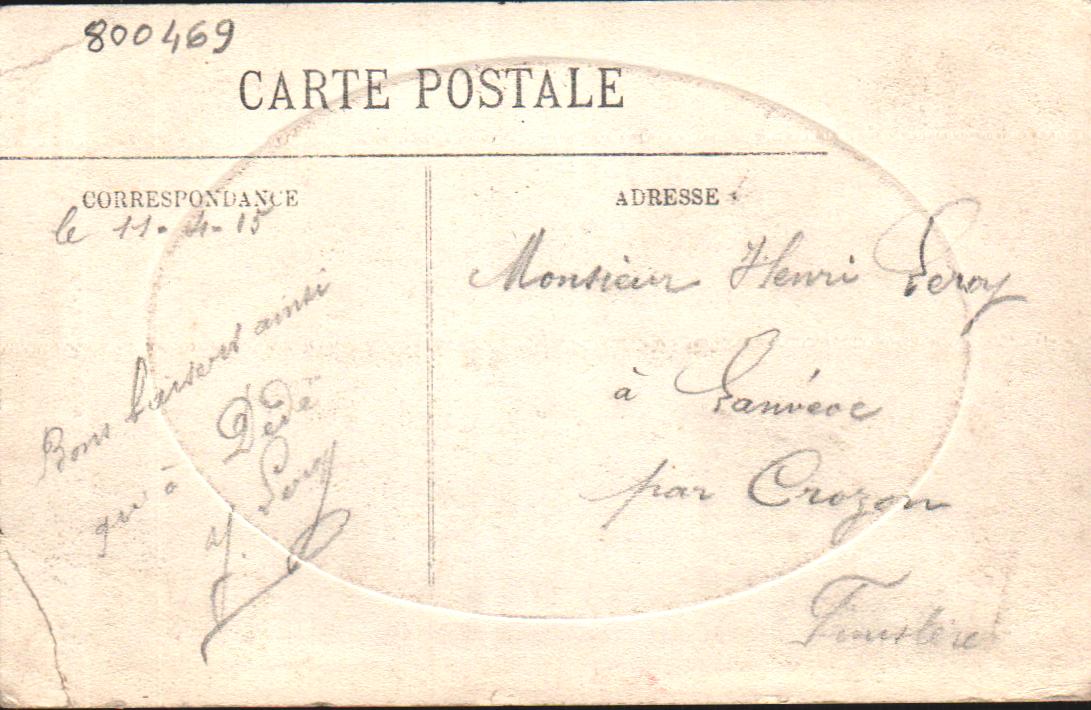 800469
CARTE POSTALE
CORRESPONDANCE
ADRESSE :
le 11-4-15
Bons baisers ainsi
qu'à Dédé
Y. Leroy
Monsieur Henri Leroy
à Lanvéoc
par Crozon
Finistère